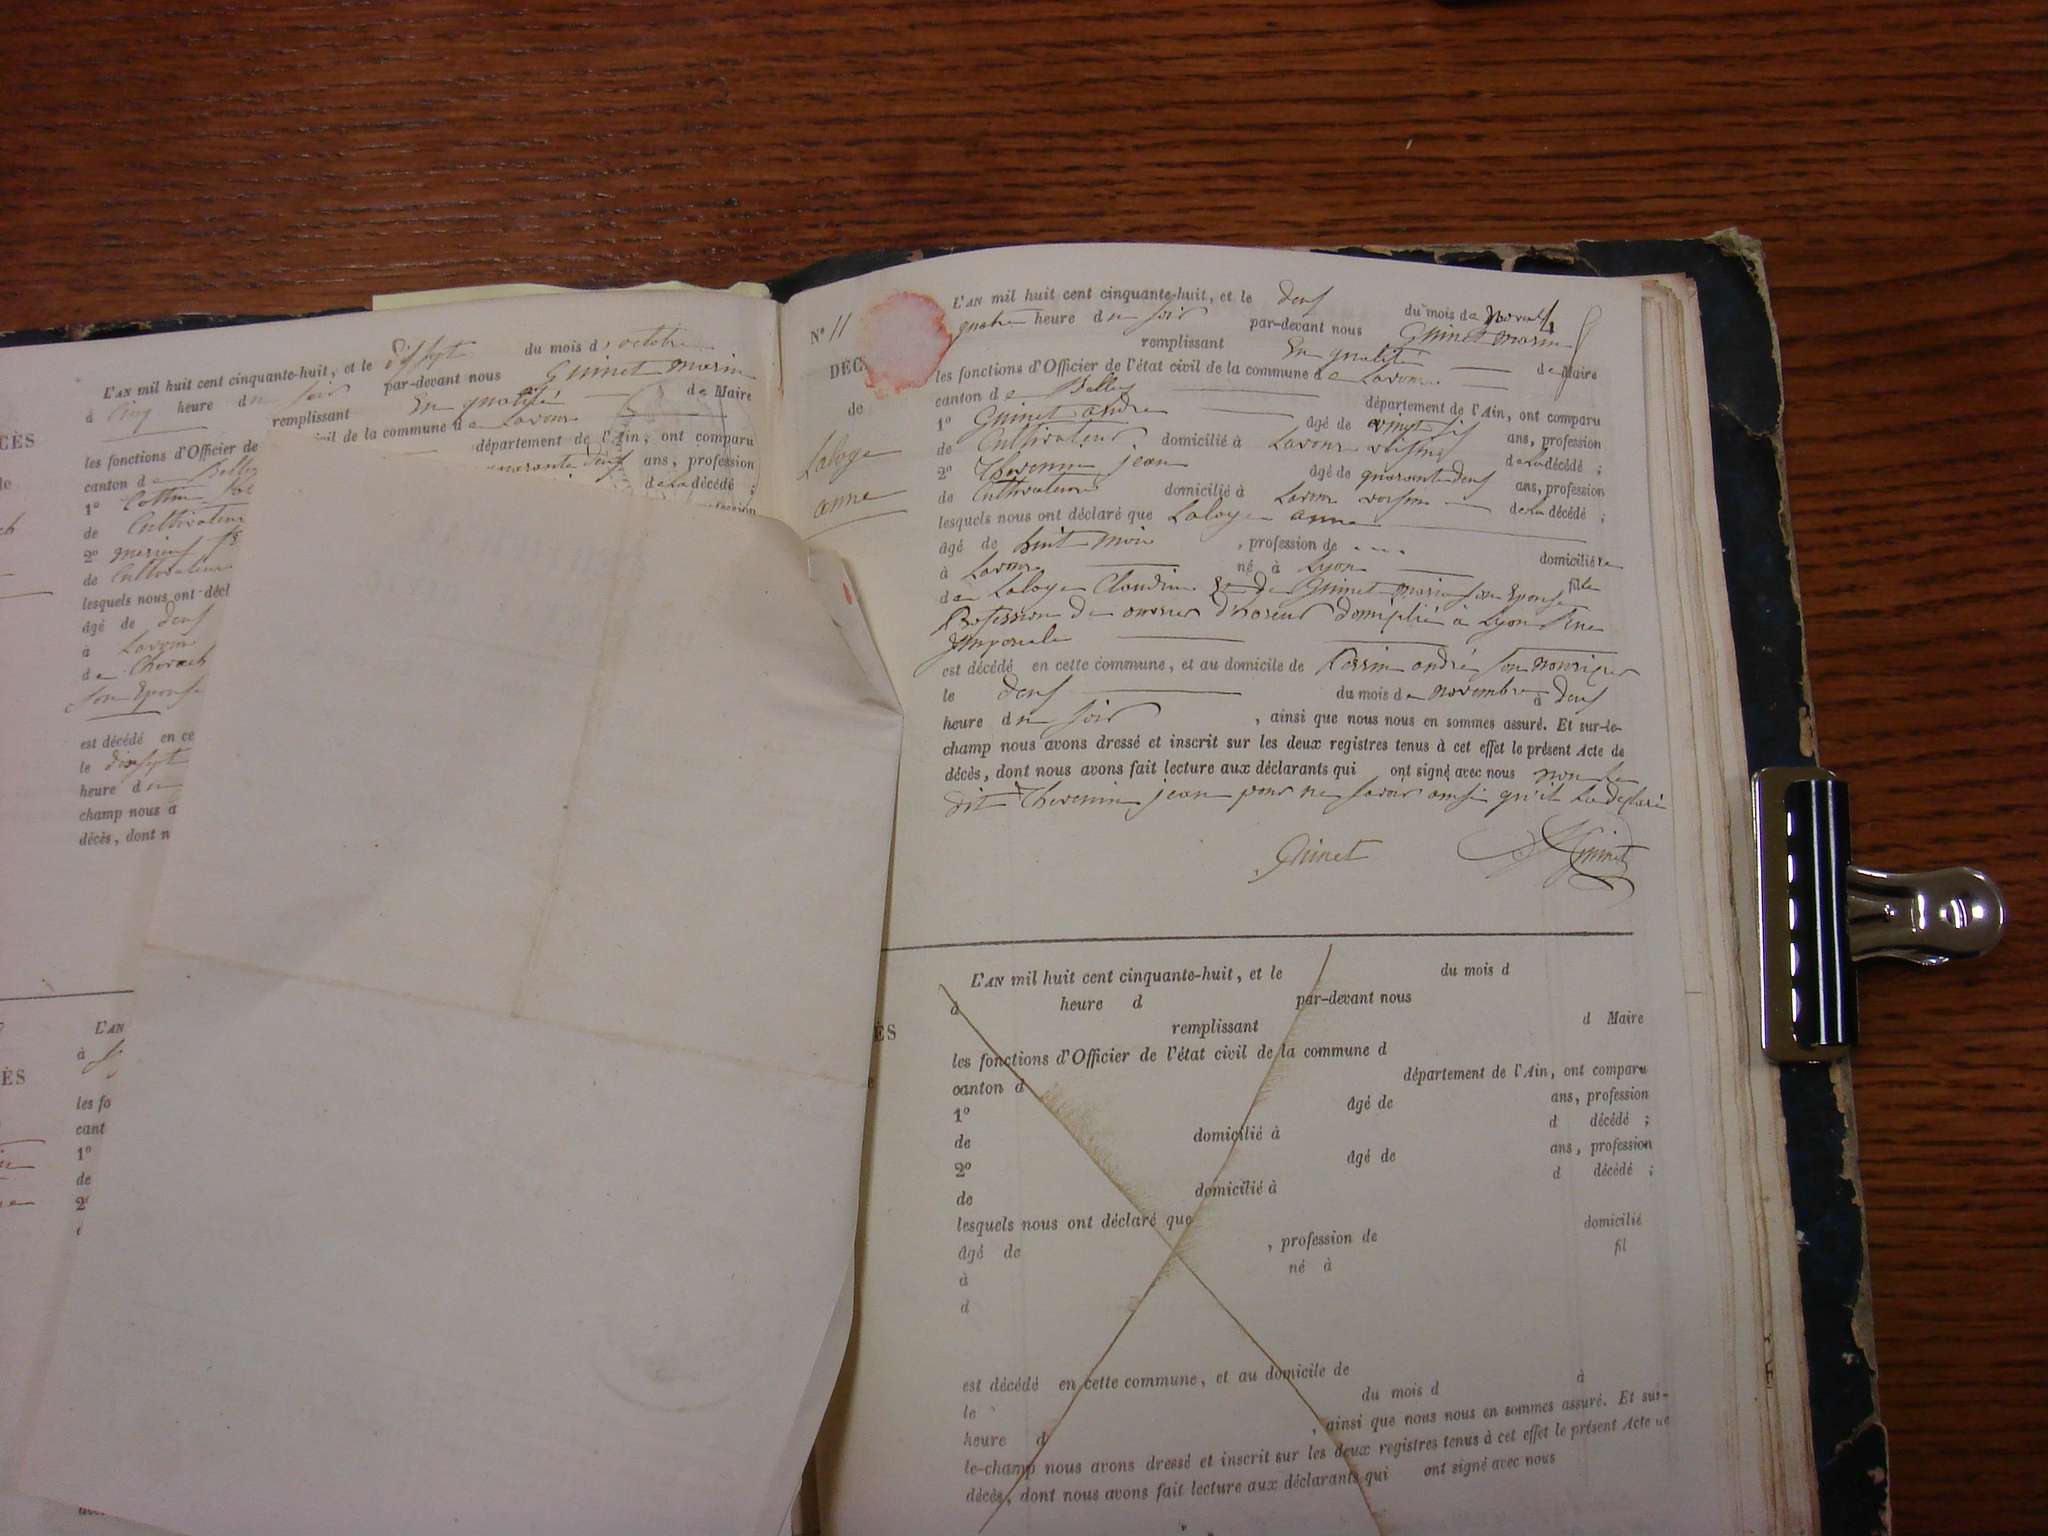 CÈS
L'AN mil huit cent cinquante-huit, et le dix sept du mois d'octobre
à Cinq heure du soir par-devant nous Guinet marin
remplissant En qualité de Maire
les fonctions d'Officier de
civil de la commune de Lavour
canton de Belley
département de l'Ain, ont comparu
1º Cottin
quarante deux ans, profession
de Cultivateur
de La décédé ;
2º
de Cultivateur
lesquels nous ont décl
âgé de deux
à Lavour
de
son Epouse
est décédé en ce
le dix sept
heure du
champ nous a
décès, dont n
L'AN
à
ÈS
les fo
cant
1º
de
2º
Nº 11
DÉC
de
Laloge
anne
L'AN mil huit cent cinquante-huit, et le deux du mois de novembre
quatre heure du soir par-devant nous Guinet marin
remplissant En qualité de Maire
les fonctions d'Officier de l'état civil de la commune de Lavour
canton de Belley département de l'Ain, ont comparu
1º Guinet andre âgé de vingt six ans, profession
de Cultivateur domicilié à Lavour voisin de La décédé ;
2º Thevenin jean âgé de quarante deux ans, profession
de Cultivateur domicilié à Lavour voisin de La décédé ;
lesquels nous ont déclaré que Laloge anne
âgé de huit mois , profession de ... domicilié
à Lavour né à Lyon fille
de Laloge Claudius et de Guinet marie son Epouse
Profession de ouvrier doreur domicilié à Lyon Rue
Imperiale
est décédé en cette commune, et au domicile de Perrin andré son nourigeur
le deux du mois de novembre à deux
heure du soir , ainsi que nous nous en sommes assuré. Et sur-le-
champ nous avons dressé et inscrit sur les deux registres tenus à cet effet le présent Acte de
décès, dont nous avons fait lecture aux déclarants qui ont signé avec nous non le
dit Thevenin jean pour ne savoir ainsi qu'il La déclaré
Guinet Guinet
ÈS
L'AN mil huit cent cinquante-huit, et le du mois d
à heure d par-devant nous
remplissant d Maire
les fonctions d'Officier de l'état civil de la commune d
canton d département de l'Ain, ont comparu
1º âgé de ans, profession
de domicilié à d décédé ;
2º âgé de ans, profession
de domicilié à d décédé ;
lesquels nous ont déclaré que
âgé de , profession de domicilié
à né à fil
d
est décédé en cette commune, et au domicile de
le du mois d à
heure d , ainsi que nous nous en sommes assuré. Et sur-
le-champ nous avons dressé et inscrit sur les deux registres tenus à cet effet le présent Acte de
décès, dont nous avons fait lecture aux déclarants qui ont signé avec nous